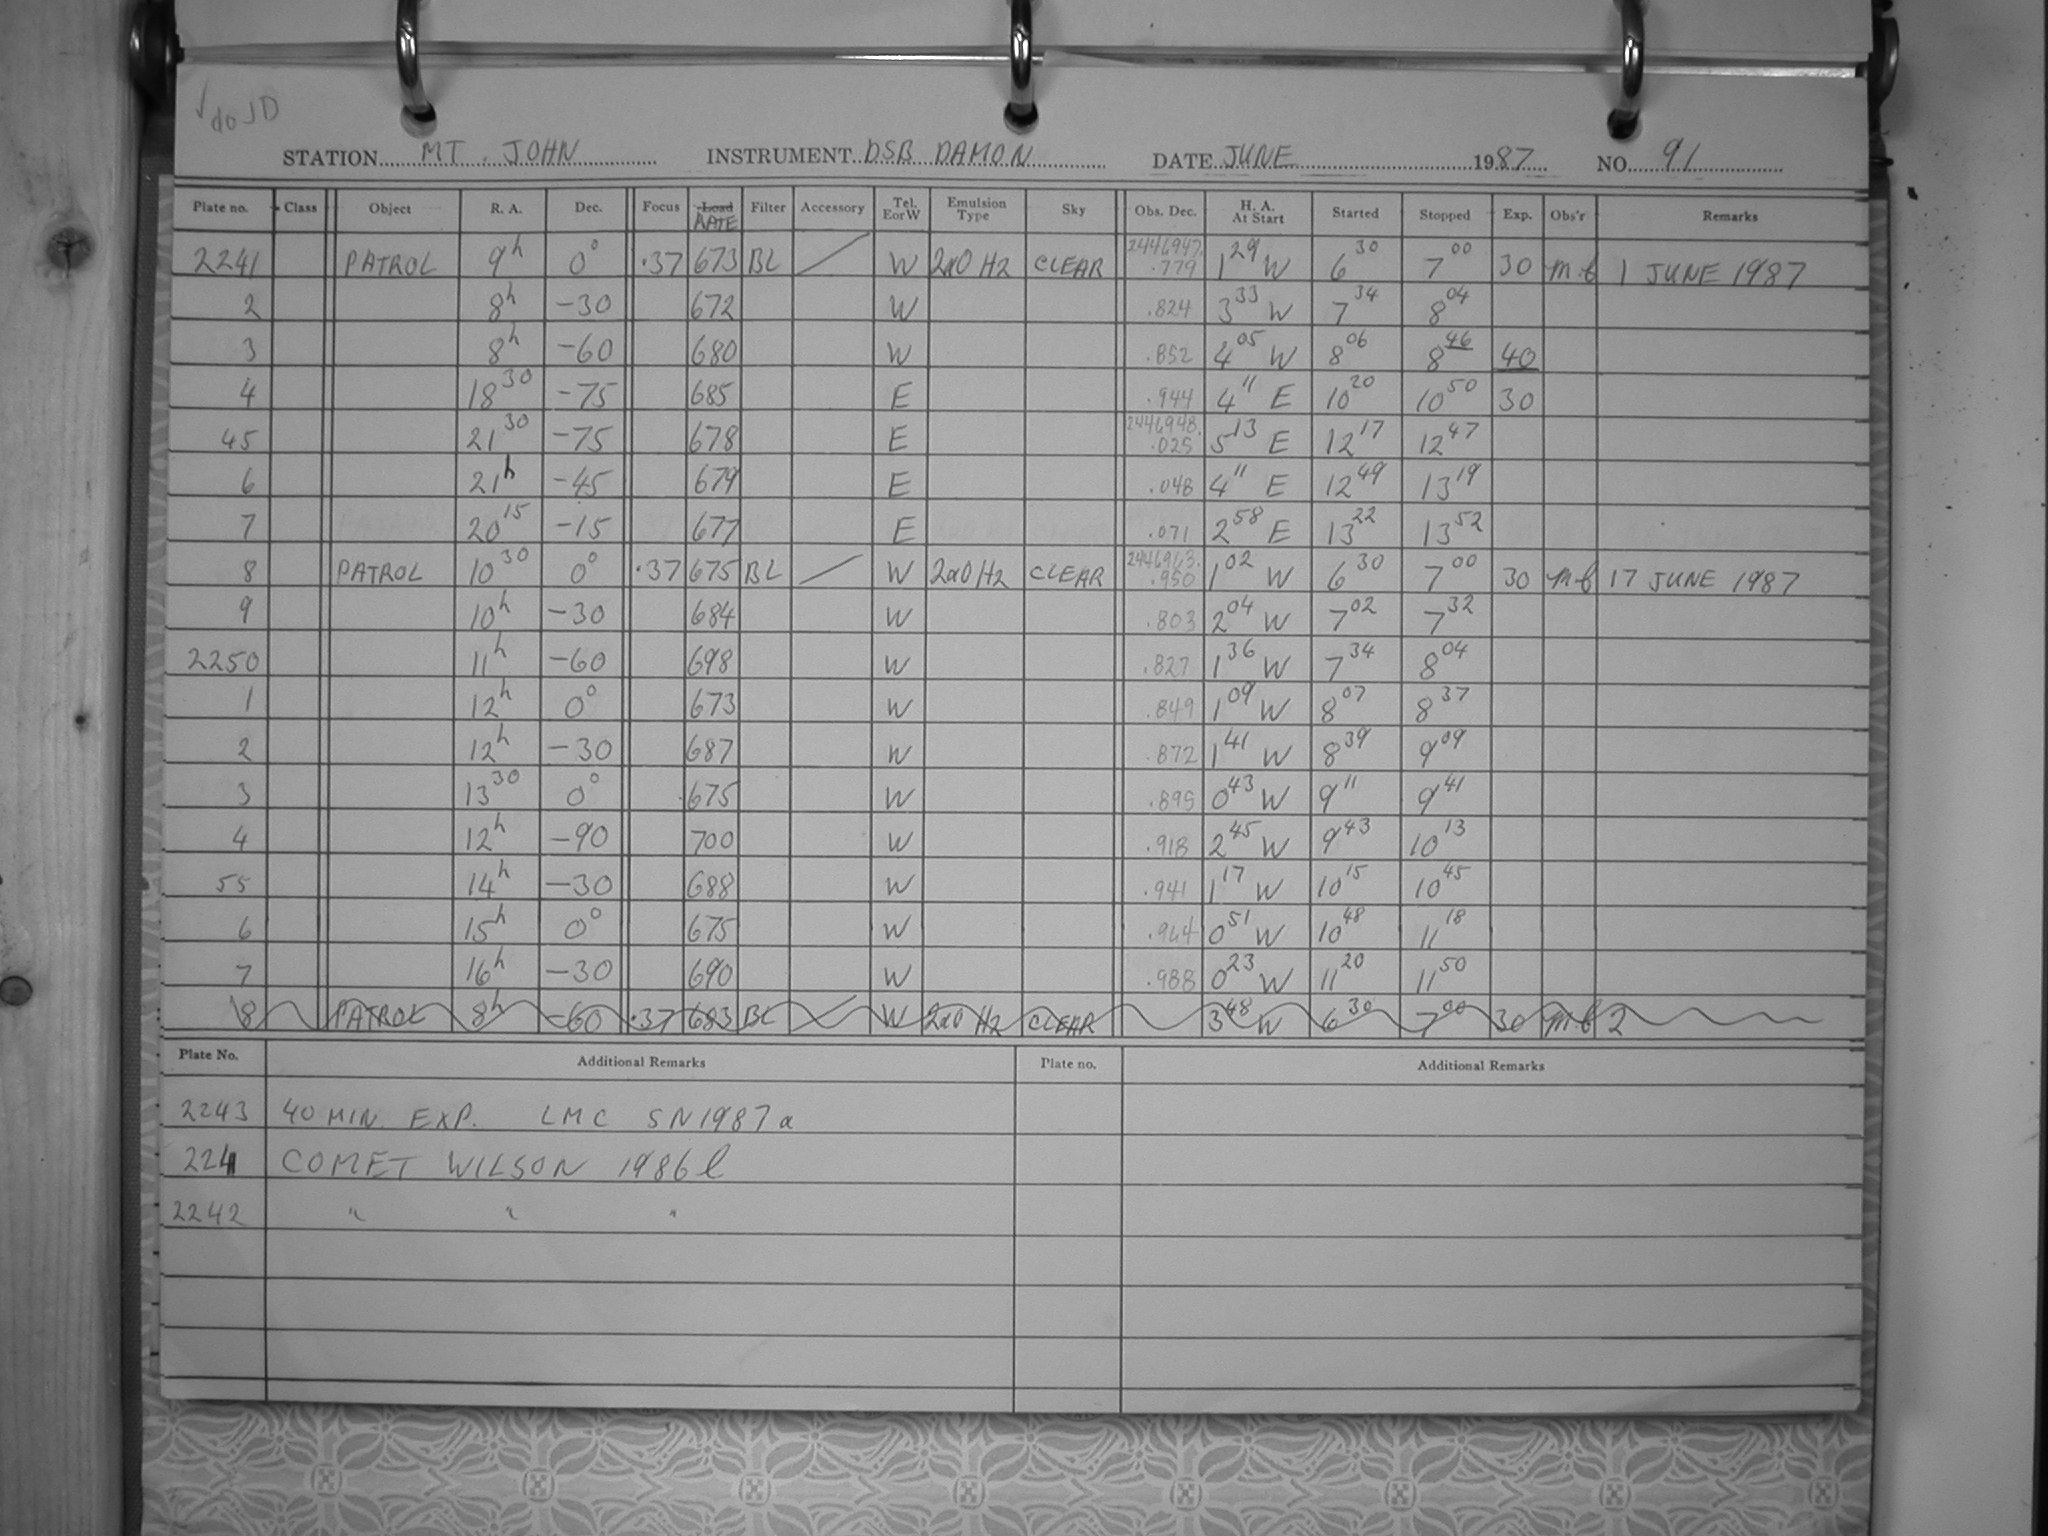 √ do JD
STATION MT. JOHN INSTRUMENT DSB DAMON DATE JUNE 1987 NO. 91
Plate no. Class Object R. A. Dec. Focus Load RATE Filter Accessory Tel. E or W Emulsion Type Sky Obs. Dec. H. A. At Start Started Stopped Exp. Obs'r Remarks
2241 PATROL 9h 0° .37 673 BL / W 2a0 H2 CLEAR 2446947. .779 1 29 W 6 30 7 00 30 m.f 1 JUNE 1987
2 8h -30 672 W .824 3 33 W 7 34 8 04
3 8h -60 680 W .852 4 05 W 8 06 8 46 40
4 18 30 -75 685 E .944 4 11 E 10 20 10 50 30
45 21 30 -75 678 E 2446948. .025 5 13 E 12 17 12 47
6 21h -45 679 E .048 4 11 E 12 49 13 19
7 20 15 -15 677 E .071 2 58 E 13 22 13 52
8 PATROL 10 30 0° .37 675 BL / W 2a0 H2 CLEAR 2446963. .950 1 02 W 6 30 7 00 30 m.f 17 JUNE 1987
9 10h -30 684 W .803 2 04 W 7 02 7 32
2250 11h -60 698 W .827 1 36 W 7 34 8 04
1 12h 0° 673 W .849 1 09 W 8 07 8 37
2 12h -30 687 W .872 1 41 W 8 39 9 09
3 13 30 0° 675 W .895 0 43 W 9 11 9 41
4 12h -90 700 W .918 2 45 W 9 43 10 13
55 14h -30 688 W .941 1 17 W 10 15 10 45
6 15h 0° 675 W .964 0 51 W 10 48 11 18
7 16h -30 690 W .988 0 23 W 11 20 11 50
8 PATROL 8h -60 .37 683 BL / W 2a0 H2 CLEAR 3 48 W 6 30 7 00 30 m.f 2
Plate No. Additional Remarks Plate no. Additional Remarks
2243 40 MIN. EXP. LMC SN1987a
2241 COMET WILSON 1986l
2242 " " "